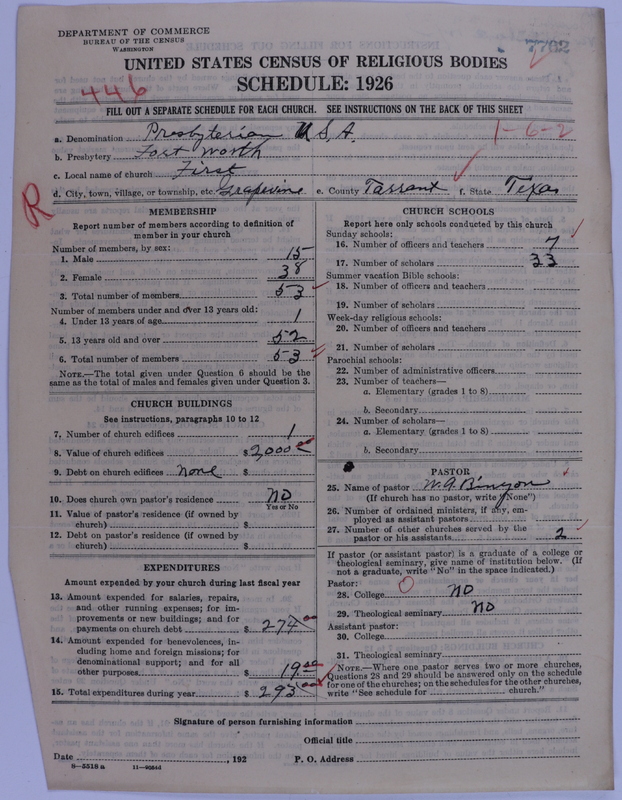 DEPARTMENT OF COMMERCE
BUREAU OF THE CENSUS
WASHINGTON
7762
UNITED STATES CENSUS OF RELIGIOUS BODIES
SCHEDULE: 1926
446
FILL OUT A SEPARATE SCHEDULE FOR EACH CHURCH. SEE INSTRUCTIONS ON THE BACK OF THIS SHEET
a. Denomination Presbyterian U.S.A. 1-6-2
b. Presbytery Fort Worth
c. Local name of church First
d. City, town, village, or township, etc. Grapevine e. County Tarrant f. State Texas
R
MEMBERSHIP
Report number of members according to definition of
member in your church
Number of members, by sex:
1. Male 15
2. Female 38
3. Total number of members 53
Number of members under and over 13 years old:
4. Under 13 years of age 1
5. 13 years old and over 52
6. Total number of members 53
NOTE.—The total given under Question 6 should be the
same as the total of males and females given under Question 3.
CHURCH BUILDINGS
See instructions, paragraphs 10 to 12
7. Number of church edifices 1
8. Value of church edifices $2,000
9. Debt on church edifices none $
10. Does church own pastor's residence no
Yes or No
11. Value of pastor's residence (if owned by
church) $
12. Debt on pastor's residence (if owned by
church) $
EXPENDITURES
Amount expended by your church during last fiscal year
13. Amount expended for salaries, repairs,
and other running expenses; for im-
provements or new buildings; and for
payments on church debt $ 274 00
14. Amount expended for benevolences, in-
cluding home and foreign missions; for
denominational support; and for all
other purposes $ 19 00
15. Total expenditures during year $ 293 00
CHURCH SCHOOLS
Report here only schools conducted by this church
Sunday schools:
16. Number of officers and teachers 7
17. Number of scholars 33
Summer vacation Bible schools:
18. Number of officers and teachers
19. Number of scholars
Week-day religious schools:
20. Number of officers and teachers
21. Number of scholars
Parochial schools:
22. Number of administrative officers
23. Number of teachers—
a. Elementary (grades 1 to 8)
b. Secondary
24. Number of scholars—
a. Elementary (grades 1 to 8)
b. Secondary
PASTOR
25. Name of pastor W. A. Binyon
(If church has no pastor, write "None")
26. Number of ordained ministers, if any, em-
ployed as assistant pastors
27. Number of other churches served by the
pastor or his assistants 2
If pastor (or assistant pastor) is a graduate of a college or
theological seminary, give name of institution below. (If
not a graduate, write "No" in the space indicated.)
Pastor:
28. College no
29. Theological seminary no
Assistant pastor:
30. College
31. Theological seminary
NOTE.—Where one pastor serves two or more churches,
Questions 28 and 29 should be answered only on the schedule
for one of the churches; on the schedules for the other churches,
write "See schedule for church."
Signature of person furnishing information
Official title
Date , 192 P. O. Address
8—5518 a